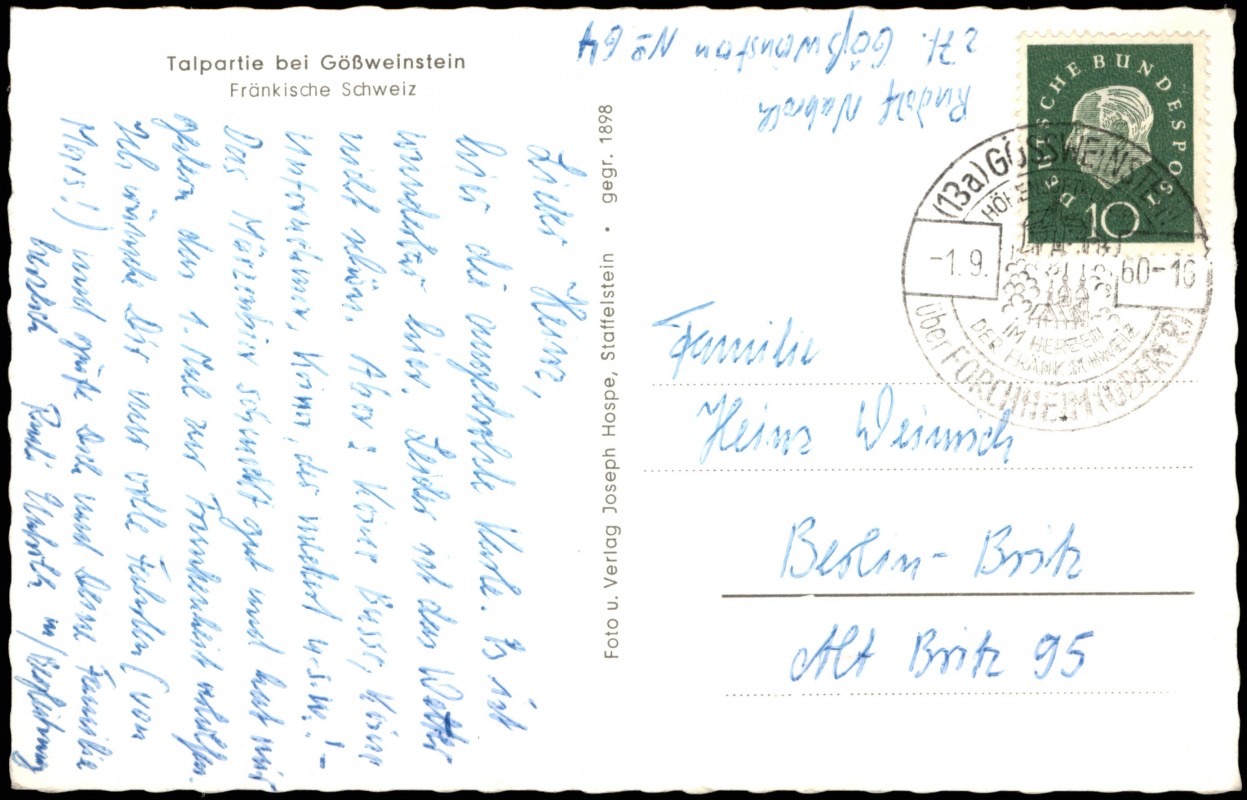 Talpartie bei Gößweinstein
Fränkische Schweiz
Lieber Heinz,
hier die angedrohte Karte. Es ist
wunderbar hier. Leider ist das Wetter
nicht schön. Aber: Keine Busse, keine
Unformicher, keiner, der meckert u.s.w.! -
Das Märzenbier schmeckt gut und hat mir
gestern das 1. Mal zur Trunkenheit verholfen.
Ich wünsche Dir nur volle Fuhren (von
Moos!) und grüße Dich und Deine Familie
herzlich Rudi m/Begleitung
Foto u. Verlag Joseph Hospe, Staffelstein • gegr. 1898
Rudolf
z.Zt. Gößweinstein No 64
DEUTSCHE BUNDESPOST
10
(13a) GÖSSWEINSTEIN
-1.9.60-16
IM HERZEN
DER FRÄNK. SCHWEIZ
über FORCHHEIM (OBERFR)
Familie
Heinz Weinrich
Berlin-Britz
Alt Britz 95